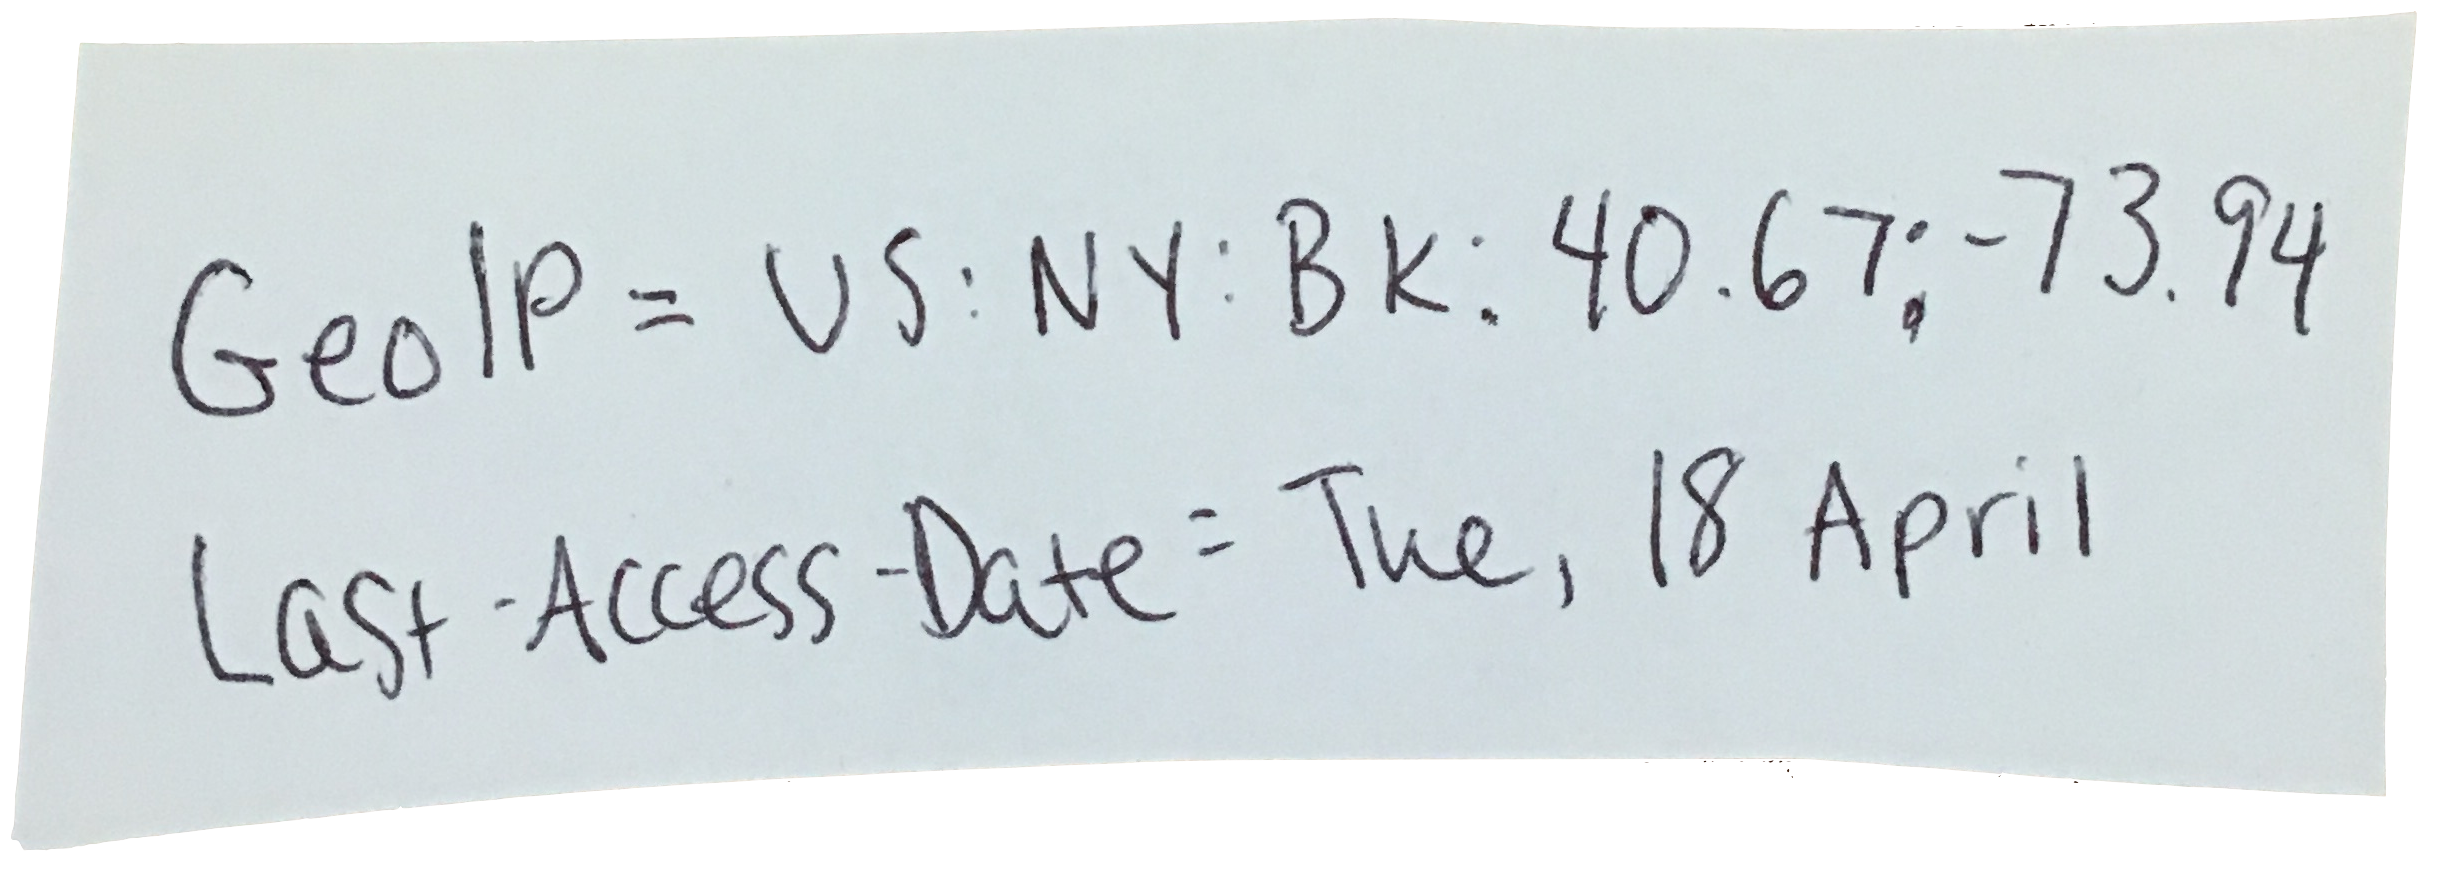 GeoIP = US:NY:BK: 40.67;-73.94
Last-Access-Date = Tue, 18 April